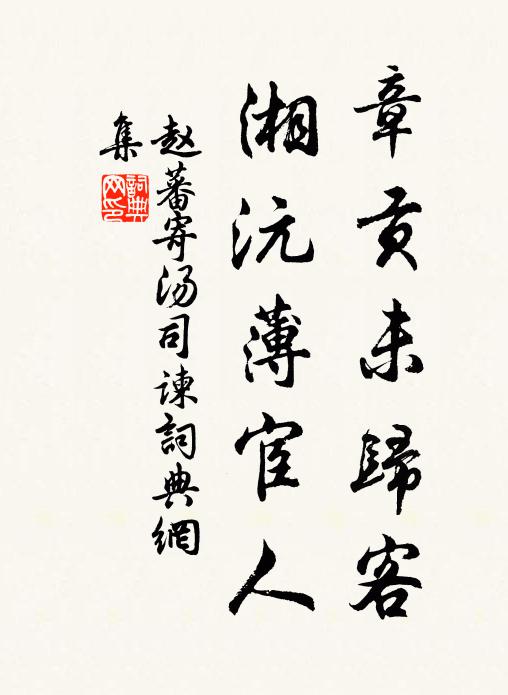 章贡未歸客
湘沅薄宦人
赵蕃寄汤司諫詞典網
集
詞典
网印